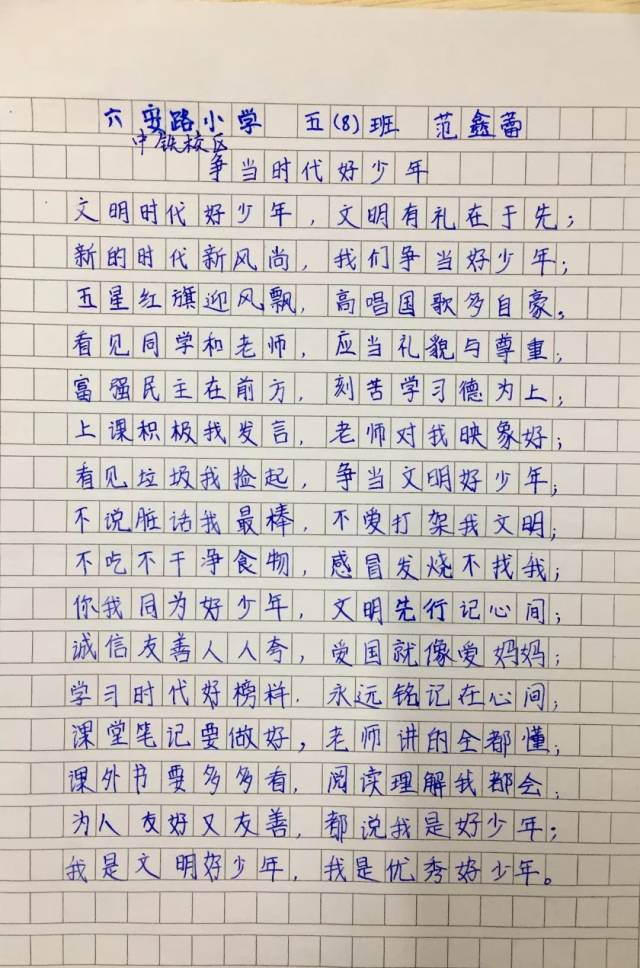 六安路小学 五(8)班 范鑫蕾
中铁校区
争当时代好少年
文明时代好少年，文明有礼在于先；
新的时代新风尚，我们争当好少年；
五星红旗迎风飘，高唱国歌多自豪。
看见同学和老师，应当礼貌与尊重；
富强民主在前方，刻苦学习德为上；
上课积极我发言，老师对我映象好；
看见垃圾我捡起，争当文明好少年；
不说脏话我最棒，不爱打架我文明；
不吃不干净食物，感冒发烧不找我；
你我同为好少年，文明先行记心间；
诚信友善人人夸，爱国就像爱妈妈；
学习时代好榜样．永远铭记在心间；
课堂笔记要做好，老师讲的全都懂；
课外书要多多看，阅读理解我都会；
为人友好又友善，都说我是好少年；
我是文明好少年，我是优秀好少年。